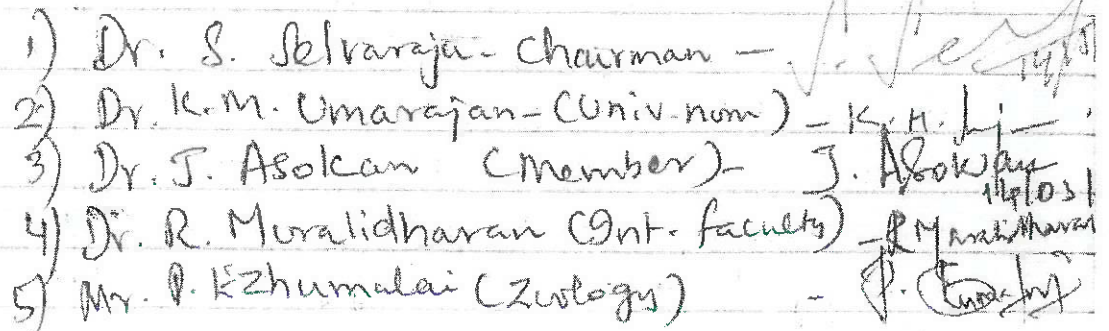 1) Dr. S. Selvaraju - Chairman - S. Se 14/3
2) Dr. K.M. Umarajan - (Univ. nom) - K.M.
3) Dr. J. Asokan (Member) - J. Asokan
14/03/
4) Dr. R. Muralidharan (Int. faculty) - R Muralidharan
5) Mr. P. Ezhumalai (Zoology) - P.